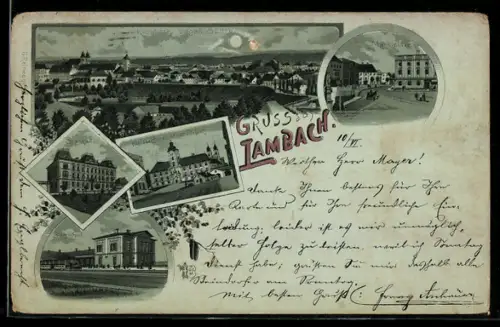 GRUSS aus
LAMBACH.
10/VI.
Werther Herr Mayer!
danke Ihnen bestens für Ihre
Karte und für Ihre freundliche Ein-
ladung; leider ist es mir unmöglich,
selber Folge zu leisten, weil ich Sonntag
Dienst habe; grüßen Sie mir deshalb alle
Steindorfer am Sonntag.
Mit besten Gruß